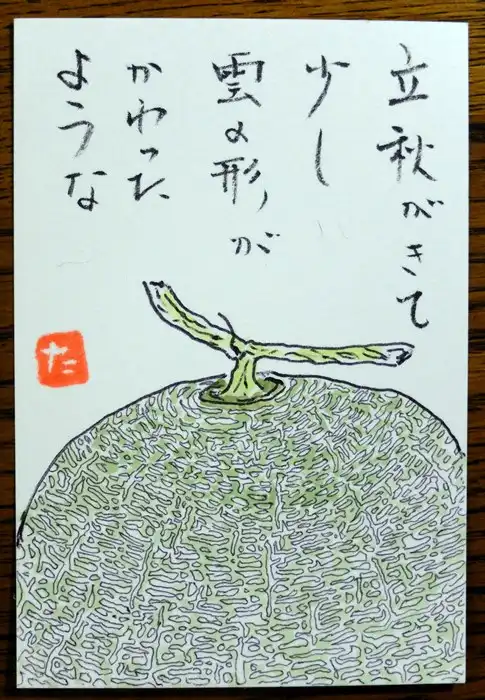 立秋がきて
少し
雲の形が
かわった
ような
た